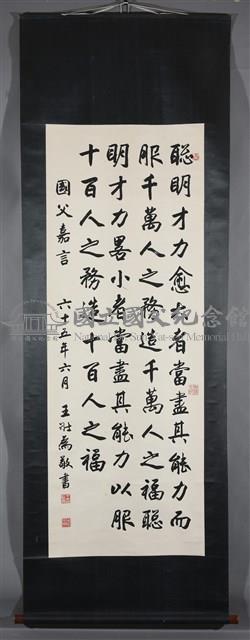 聰明才力愈大者當盡其能力而
服千萬人之務造千萬人之福聰
明才力畧小者當盡其能力以服
十百人之務造十百人之福
國父嘉言 六十五年六月 王壯為敬書
國立國父紀念館
National Dr. Sun Yat-sen Memorial Hall